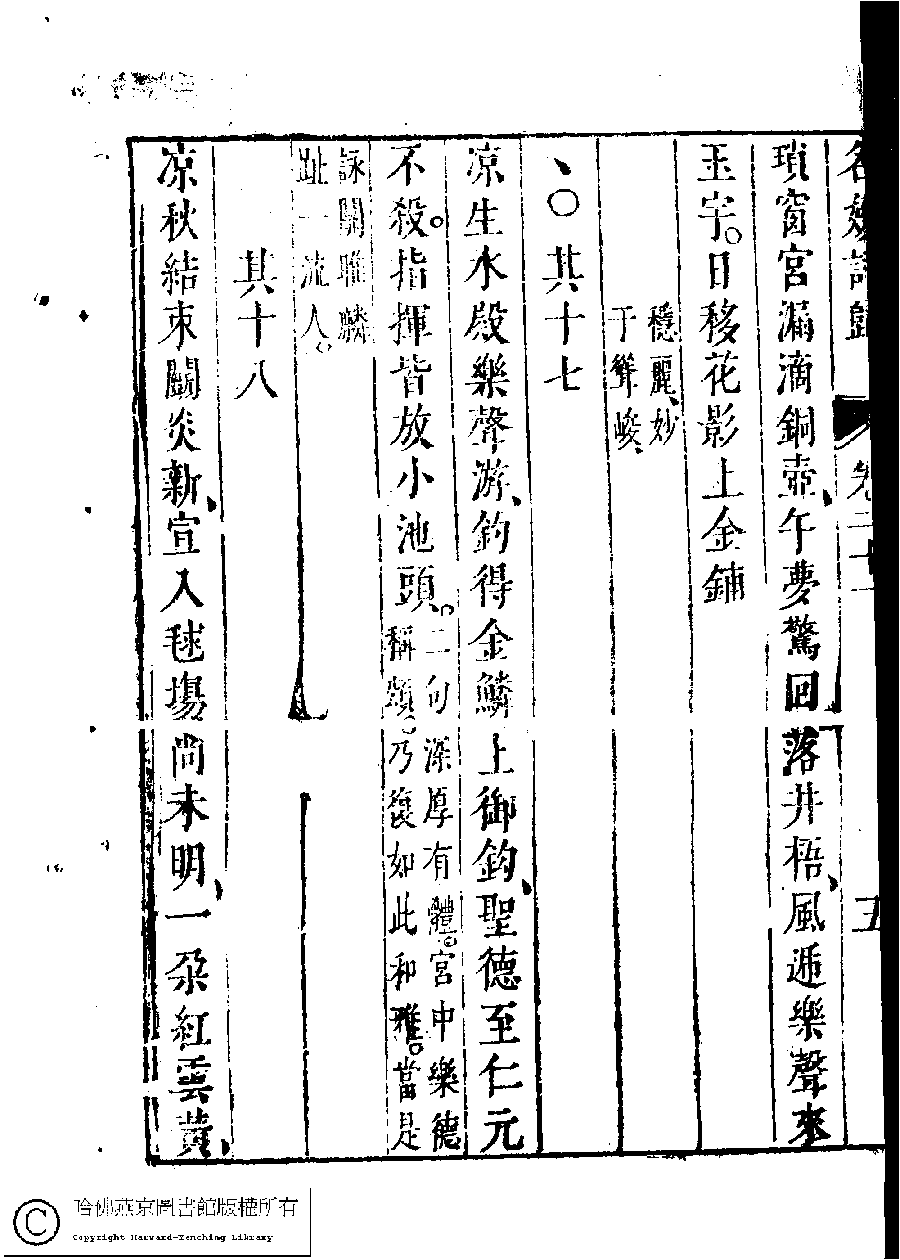 名媛詩歸 卷二十 五
瑣窗宮漏滴銅壺午夢驚回落井梧風遞樂聲來
玉宇日移花影上金鋪
穩麗妙
于聳峻
其十七
凉生水殿樂聲游釣得金鱗上御鈎聖德至仁元
不殺指揮皆放小池頭二句深厚有體宮中樂德
稱頌乃復如此和雅當是
詠關雎麟
趾一流人
其十八
凉秋結束鬬炎新宣入毬塲尚未明一朵紅雲黃
哈佛燕京圖書館版權所有
Copyright Harvard-Yenching Library